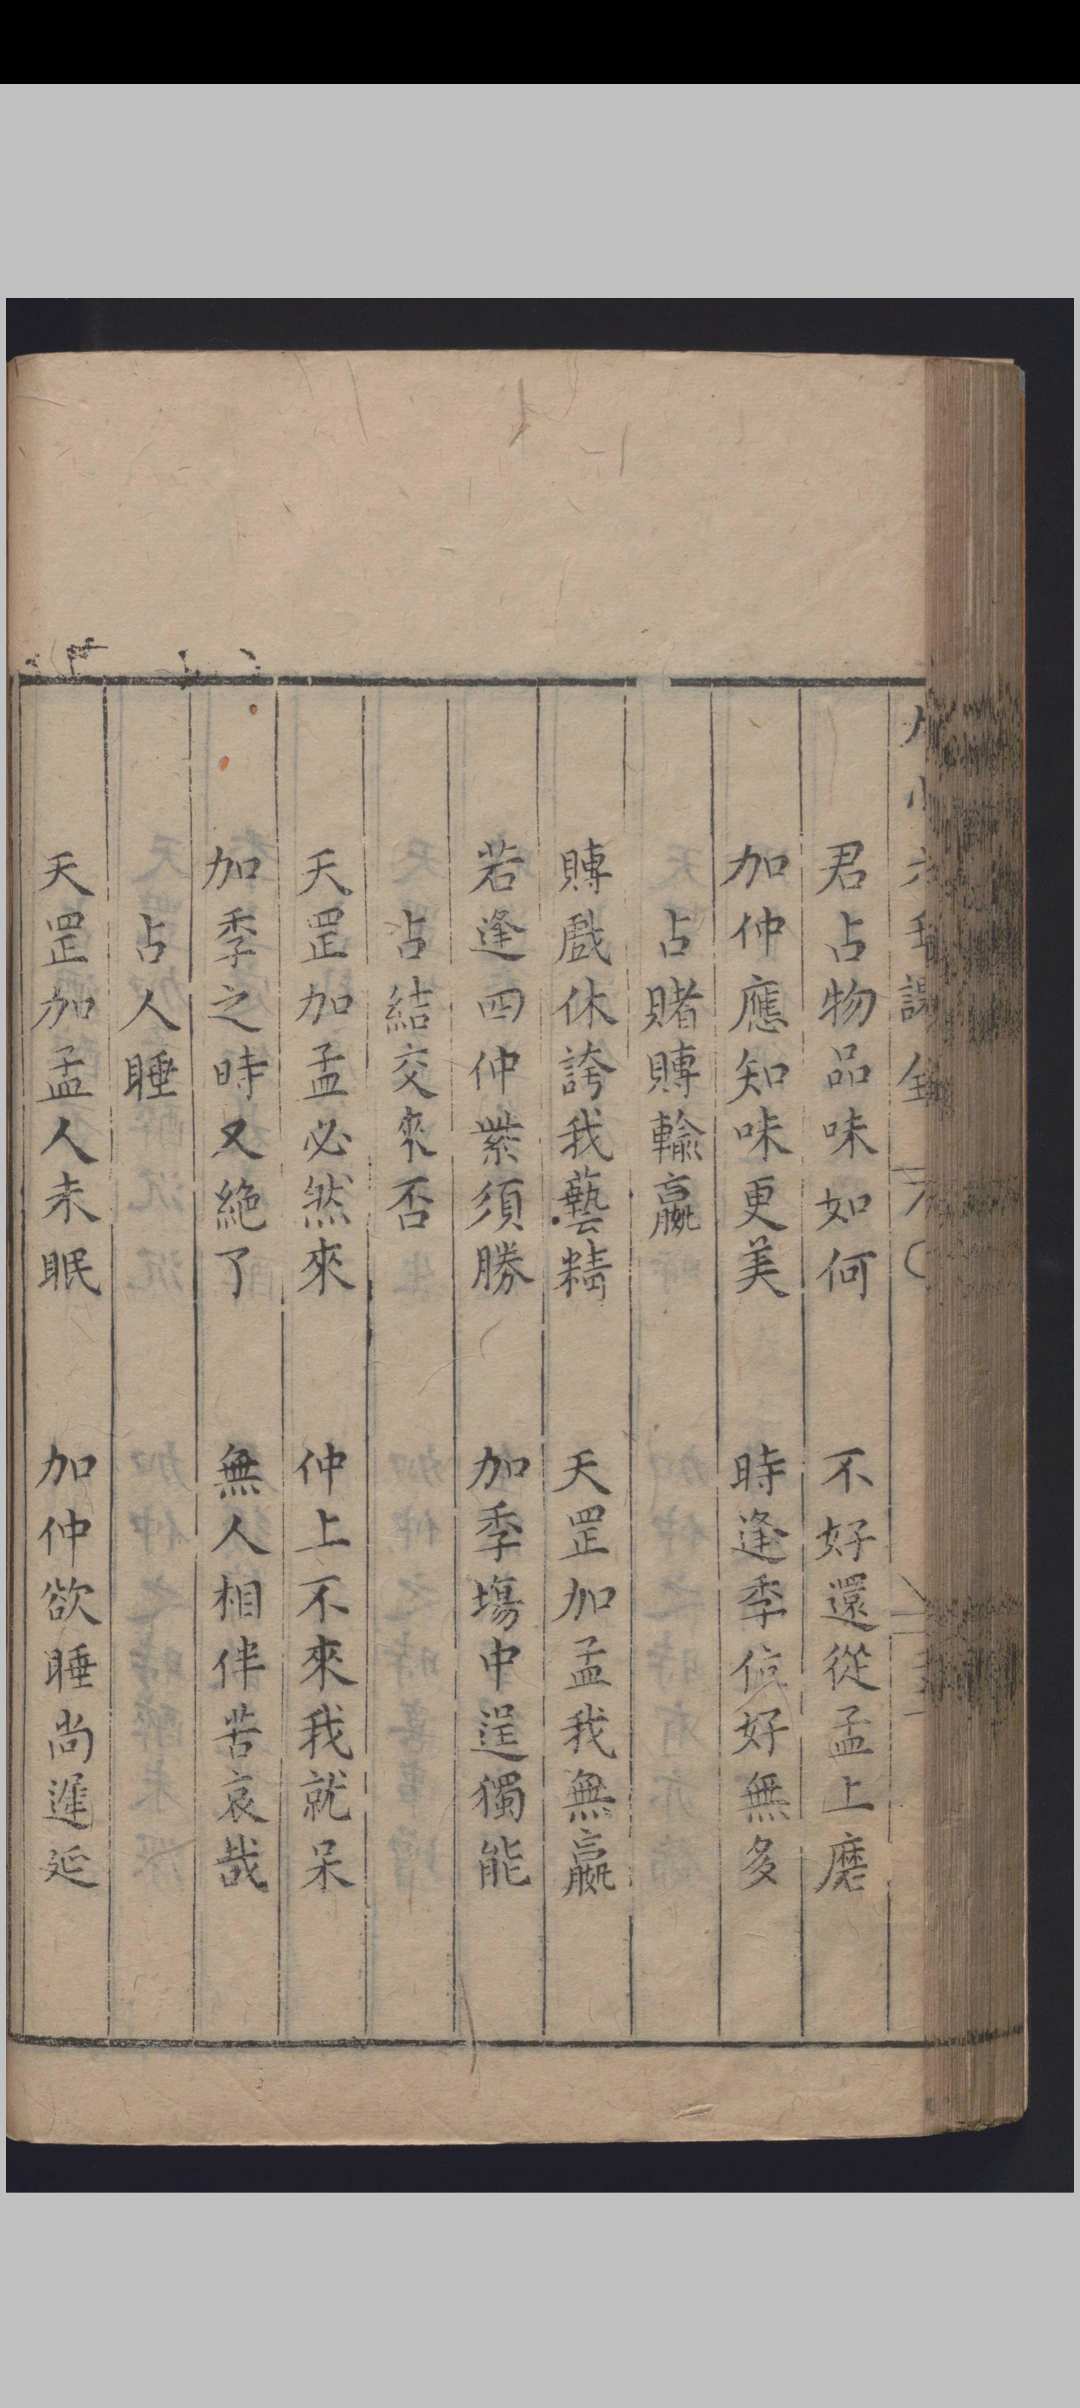 君占物品味如何　不好還從孟上磨
加仲應知味更美　時逢季位好無多
占賭賻輸贏
賻戲休誇我藝精　天罡加孟我無贏
若逢四仲業須勝　加季塲中逞獨能
占結交來否
天罡加孟必然來　仲上不來我就呆
加季之時又絕了　無人相伴苦哀哉
占人睡
天罡加孟人未眠　加仲欲睡尚遲延